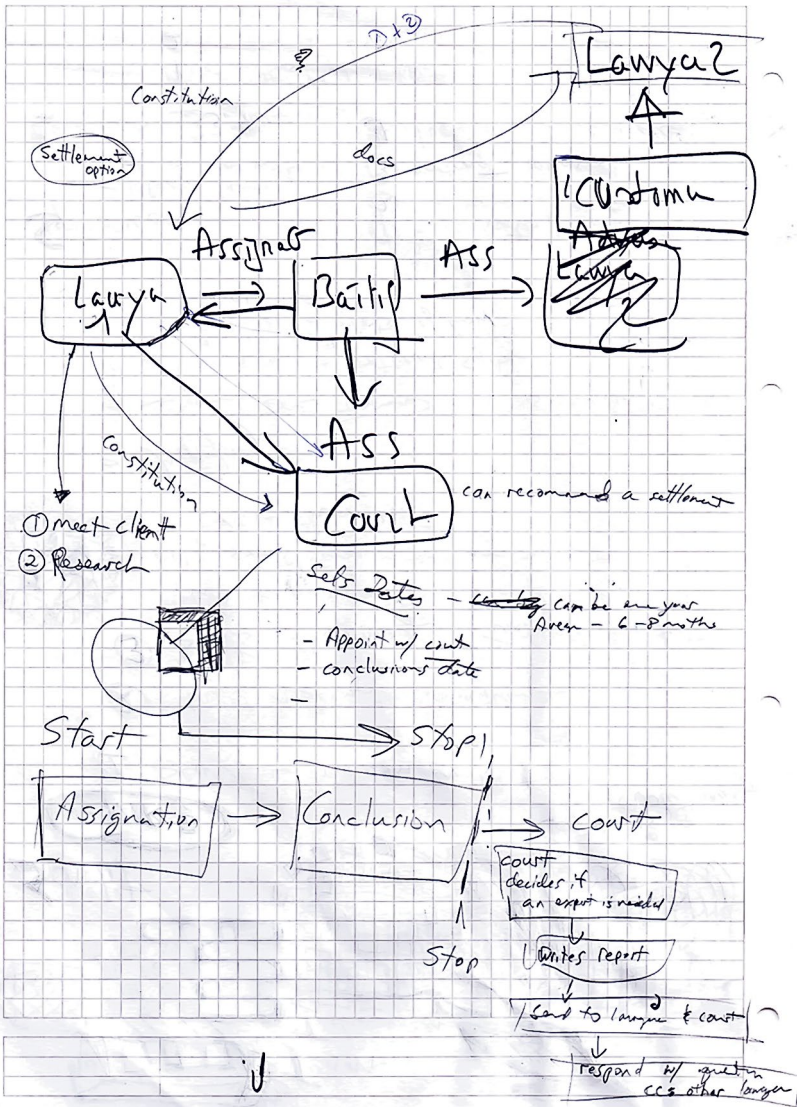 1+2
Lawya 2
Constitution
Settlement
option
docs
Customa
Assignat
Ass
Lawya
1
Bailif
Lawya
2
Ass
Constitution
Court
can recommend a settlement
① meet client
② Research
Sets Dates - can be one year
Avera - 6-8 moths
- Appoint w/ court
- conclusions date
-
3
Start
Stop
Assignation
Conclusion
court
court
decides if
an expert is needed
Stop
Writes report
Send to lawyer & court
respond w/
ccs other lawyer